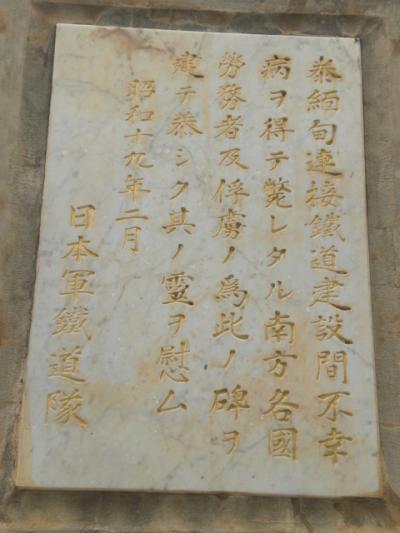 泰緬甸連接鐵道建設間不幸
病ヲ得テ斃レタル南方各國
勞務者及俘虜ノ為此ノ碑ヲ
建テ恭シク其ノ霊ヲ慰ム
昭和十九年二月
日本軍鐵道隊